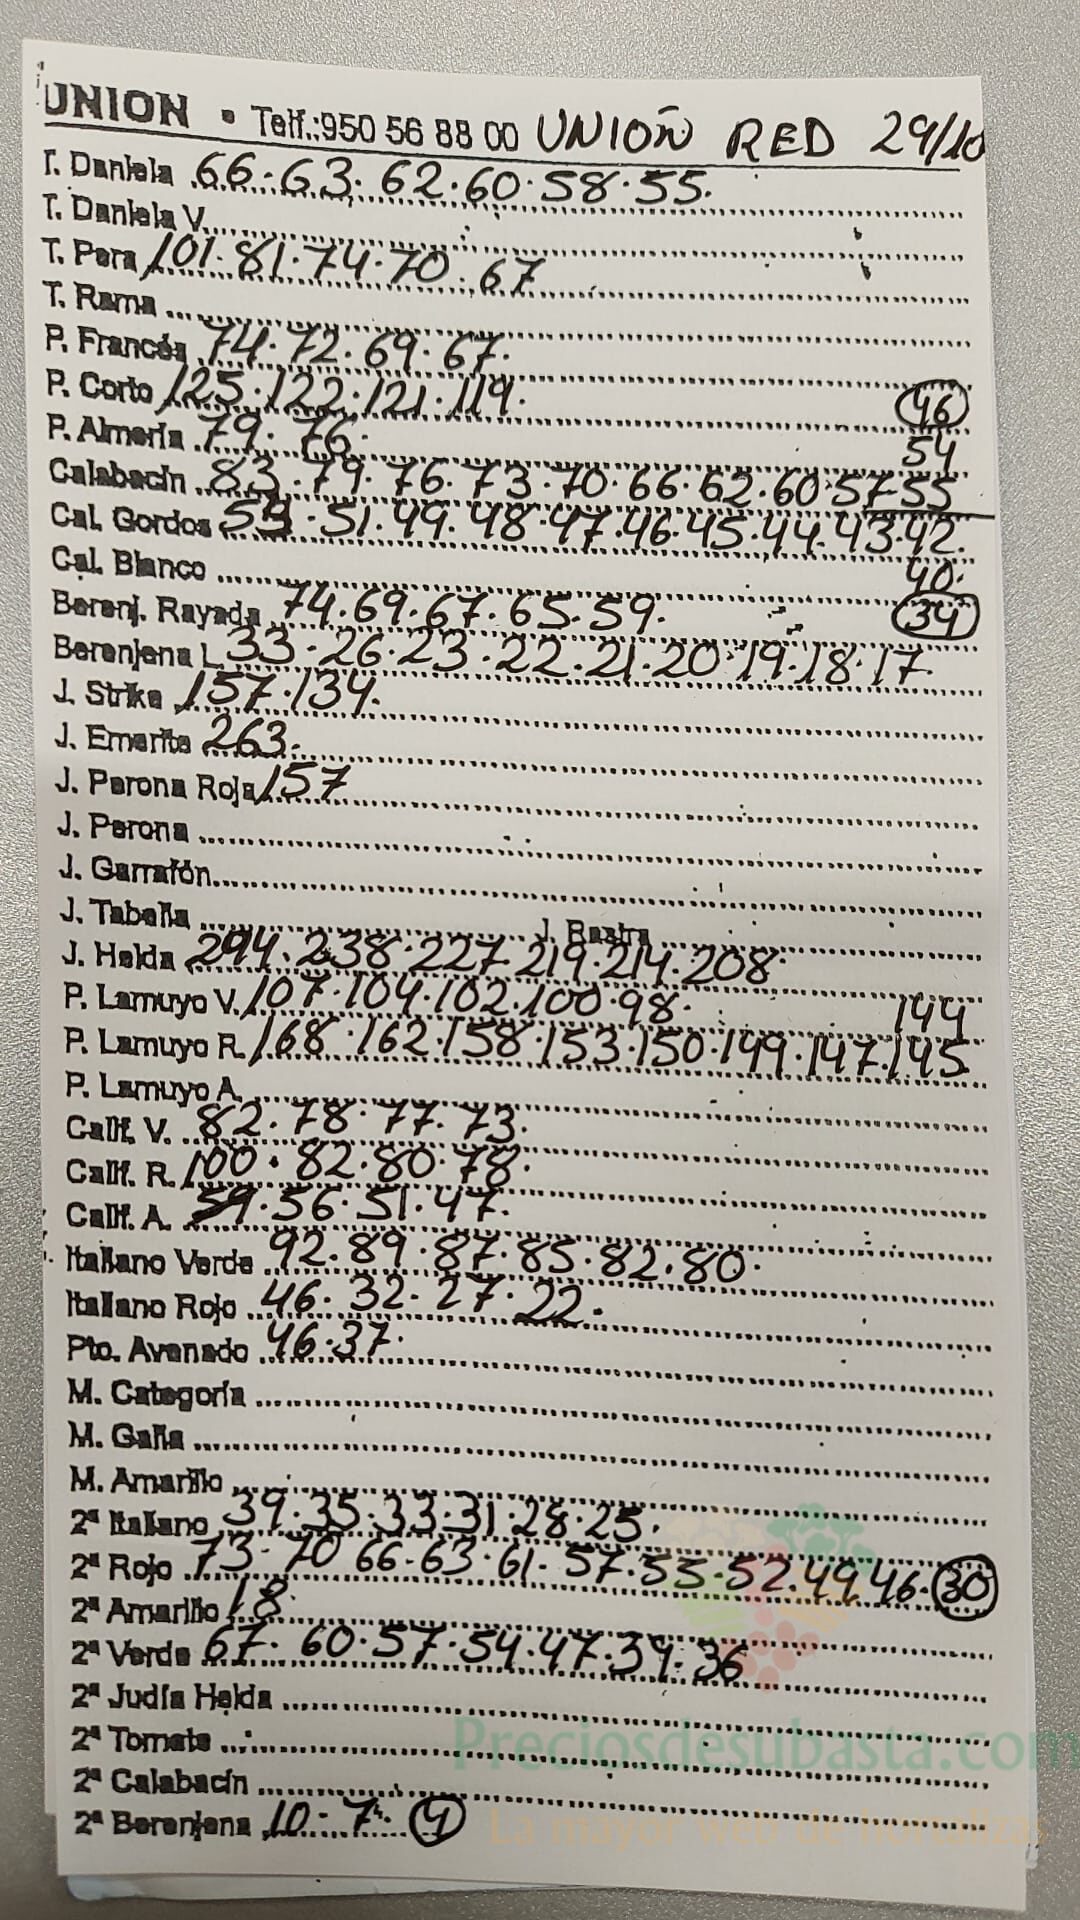 UNION • Telf.:950 56 88 00 UNIOÑ RED 29/10
T. Daniela 66.63.62.60.58.55.
T. Daniela V.
T. Pera 101.81.74.70.67
T. Rama
P. Francés 74.72.69.67.
P. Corto 125.122.121.119. 46
P. Almería 79.76. 54
Calabacín 83.79.76.73.70.66.62.60.57.55
Cal. Gordos 51.49.48.47.46.45.44.43.42.
Cal. Blanco 40.
Berenj. Rayada 74.69.67.65.59. 34
Berenjena L. 33.26.23.22.21.20.19.18.17.
J. Strike 157.134.
J. Emerite 263.
J. Perona Roja 157
J. Perona
J. Garrafón
J. Tabella J. Rastra
J. Helda 294.238.227.219.214.208
P. Lamuyo V. 107.104.102.100.98. 144
P. Lamuyo R. 168.162.158.153.150.149.147.145
P. Lamuyo A.
Calif. V. 82.78.77.73.
Calif. R. 100.82.80.78.
Calif. A. 59.56.51.47.
Italiano Verde 92.89.87.85.82.80.
Italiano Rojo 46.32.27.22.
Pto. Avenado 46.37.
M. Categoría
M. Galia
M. Amarillo
2ª Italiano 39.35.33.31.28.25.
2ª Rojo 73-70 66-63.61-57.55-52.49 46.30
2ª Amarillo 18
2ª Verde 67.60.57.54.47.39.36
2ª Judía Helda
2ª Tomate
2ª Calabacín
2ª Berenjena 10-7. 4
Preciosdesubasta.com
La mayor web de hortalizas